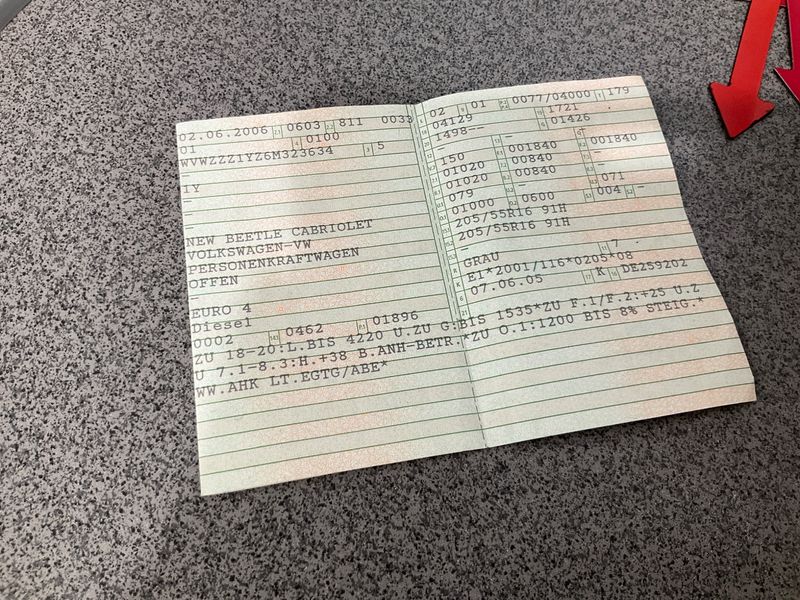 02.06.2006 0603 811 0033
01 0100
WVWZZZ1YZ6M323634 5
–
1Y
–
–
NEW BEETLE CABRIOLET
VOLKSWAGEN-VW
PERSONENKRAFTWAGEN
OFFEN
–
EURO 4
Diesel
0002 0462 01896
ZU 18-20:L.BIS 4220 U.ZU G:BIS 1535*ZU F.1/F.2:+25 U.Z
U 7.1-8.3:H.+38 B.ANH-BETR.*ZU O.1:1200 BIS 8% STEIG.*
WW.AHK LT.EGTG/ABE*
02 01 0077/04000 179
04129 1721
1498-- 01426
– –
150 001840 001840
01020 00840 –
01020 00840 –
079 – 071
01000 0600 004 –
205/55R16 91H
205/55R16 91H
–
GRAU 7
E1*2001/116*0205*08
07.06.05 K DE259202